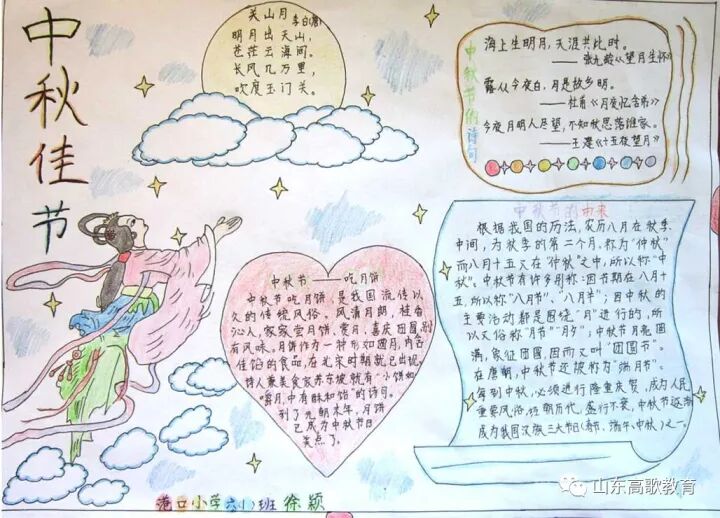 中秋佳节
关山月 李白(唐)
明月出天山，
苍茫云海间。
长风几万里，
吹度玉门关。
中秋节的诗句
海上生明月，天涯共此时。
——张九龄《望月生怀》
露从今夜白，月是故乡明。
——杜甫《月夜忆舍弟》
今夜月明人尽望，不知秋思落谁家。
——王建《十五夜望月》
中秋节的由来
根据我国的历法，农历八月在秋季
中间，为秋季的第二个月，称为“仲秋”
而八月十五又在“仲秋”之中，所以称“中
秋”。中秋节有许多别称：因节期在八月十
五，所以称“八月节”、“八月半”；因中秋的
主要活动都是围绕“月”进行的，所
以又俗称“月节”“月夕”；中秋节月亮圆
满，象征团圆，因而又叫“团圆节”。
在唐朝，中秋节还被称为“端月节”。
每到中秋，必须进行隆重庆贺，成为人民
重要风俗，历朝历代，盛行不衰，中秋节逐渐
成为我国汉族三大节日(春节、端午、中秋)之一。
中秋节——吃月饼
中秋节吃月饼，是我国流传以
久的传统风俗。风清月朗，桂香
沁人，家家尝月饼，赏月，喜庆团圆，别
有风味。月饼作为一种形如圆月，内含
佳馅的食品，在北宋时期就已出现，
诗人兼美食家苏东坡就有“小饼如
嚼月，中有酥和饴”的诗句。
到了元朝末年，月饼
已成为中秋节日
美点了。
港口小学六(1)班 徐颖
山东高歌教育